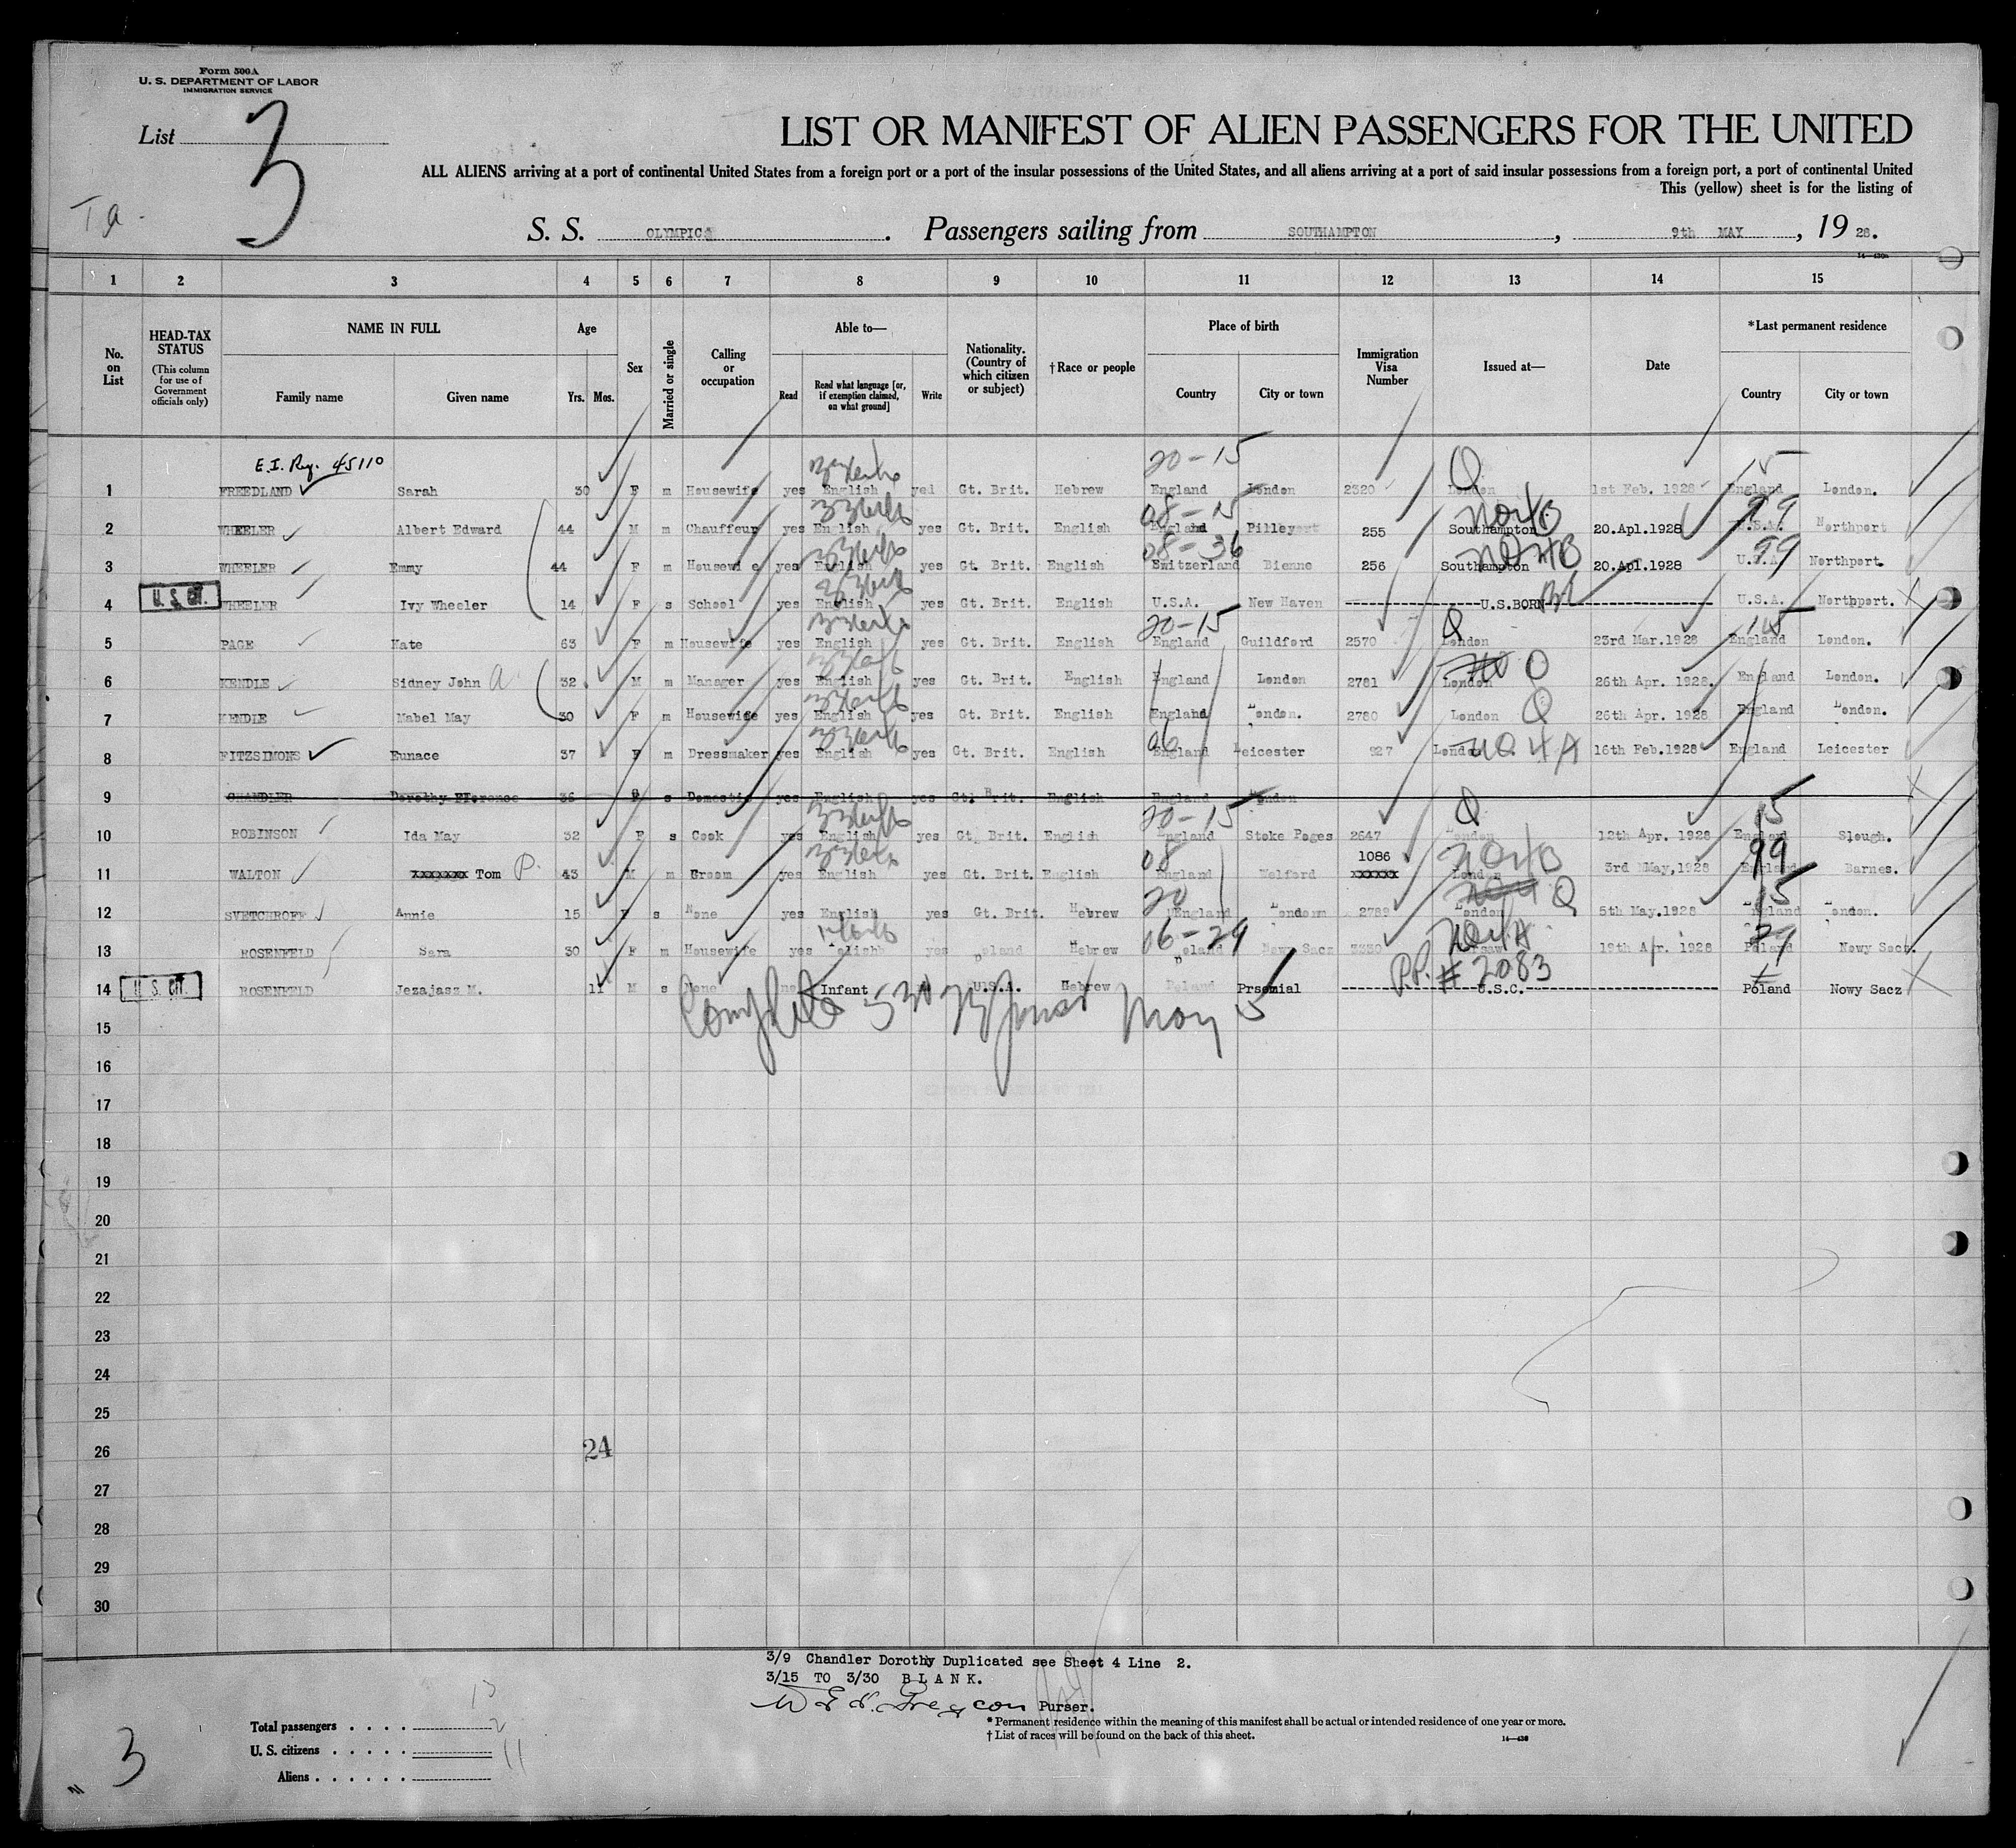 Form 500A
U. S. DEPARTMENT OF LABOR
IMMIGRATION SERVICE
List 3
LIST OR MANIFEST OF ALIEN PASSENGERS FOR THE UNITED
ALL ALIENS arriving at a port of continental United States from a foreign port or a port of the insular possessions of the United States, and all aliens arriving at a port of said insular possessions from a foreign port, a port of continental United
This (yellow) sheet is for the listing of
S. S. OLYMPIC. Passengers sailing from SOUTHAMPTON, 9th MAY, 19 28.
1 2 3 4 5 6 7 8 9 10 11 12 13 14 15
No. on List
HEAD-TAX STATUS
(This column for use of Government officials only)
NAME IN FULL
Family name Given name
Age
Yrs. Mos.
Sex
Married or single
Calling or occupation
Able to—
Read
Read what language [or, if exemption claimed, on what ground]
Write
Nationality. (Country of which citizen or subject)
†Race or people
Place of birth
Country City or town
Immigration Visa Number
Issued at—
Date
*Last permanent residence
Country City or town
E.I. Reg. 45110
20-15 Q 15
1 FREEDLAND Sarah 30 F m Housewife yes English yed Gt. Brit. Hebrew England London 2320 London 1st Feb. 1928 England London.
08-15 99
2 WHEELER Albert Edward 44 M m Chauffeur yes English yes Gt. Brit. English England Pilley 255 Southampton 20.Apl.1928 U.S.A. Northport
08-36 99
3 WHEELER Emmy 44 F m Housewi e yes English yes Gt. Brit. English Switzerland Bienne 256 Southampton 20.Apl.1928 U.S.A Northport.
4 U.S. CIT. WHEELER Ivy Wheeler 14 F s School yes English yes Gt. Brit. English U.S.A. New Haven U.S.BORN U.S.A. Northport.
20-15 Q 15
5 PAGE Kate 63 F m Housewife yes English yes Gt. Brit. English England Guildford 2570 London 23rd Mar.1928 England London.
6 KENDLE Sidney John A 32 M m Manager yes English yes Gt. Brit. English England London 2781 London Q 26th Apr. 1928. England London.
7 KENDLE Mabel May 30 F m Housewife yes English yes Gt. Brit. English England London. 2780 London Q 26th Apr. 1928 England London.
06
8 FITZSIMONS Eunace 37 F m Dressmaker yes English yes Gt. Brit. English England Leicester 927 London 16th Feb.1928 England Leicester
9 CHANDLER Dorothy Florence 36 s Domestic yes English yes Gt. Brit. English England London
20-15 Q 15
10 ROBINSON Ida May 32 F s Cook yes English yes Gt. Brit. English England Stoke Poges 2647 London 12th Apr. 1928 England Slough.
08 1086 99
11 WALTON xxxxxxx Tom P. 43 M m Groom yes English yes Gt. Brit. English England Welford xxxxx London 3rd May,1928 England Barnes.
20 Q 15
12 SVETCHROFF Annie 15 F s None yes English yes Gt. Brit. Hebrew England London 2789 London 5th May.1928 England London.
06-29 29
13 ROSENFELD Sara 30 F m Housewife yes Polish yes Poland Hebrew Poland Nowy Sacz 3330 Warsaw 19th Apr. 1928 Poland Nowy Sacz.
P.P. # 2083
14 U.S. CIT. ROSENFELD Jezajasz M. 11 M s None no Infant U.S.A. Hebrew Poland Prsemial U.S.C. Poland Nowy Sacz
15
16
17
18
19
20
21
22
23
24
25
26 24
27
28
29
30
3/9 Chandler Dorothy Duplicated see Sheet 4 Line 2.
3/15 TO 3/30 B L A N K.
Purser.
*Permanent residence within the meaning of this manifest shall be actual or intended residence of one year or more.
†List of races will be found on the back of this sheet.
14—438
Total passengers . . . . 13
U. S. citizens . . . . . 2
Aliens . . . . . . 11
3